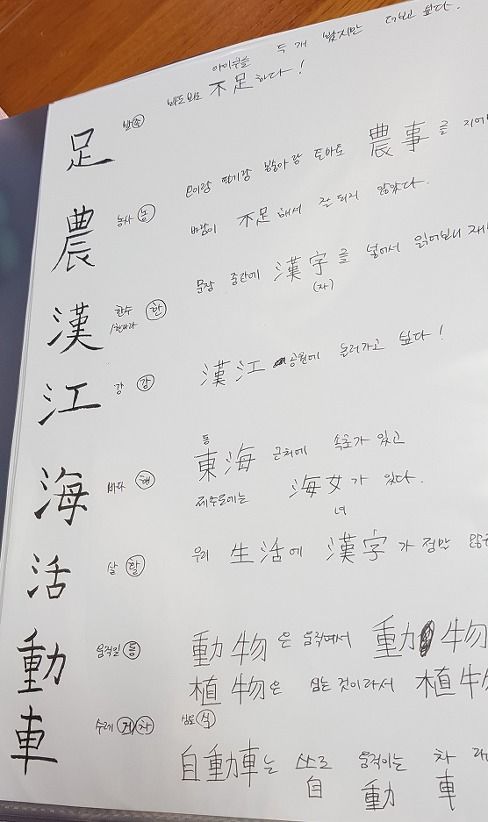 아이구들 두 개 밖지만 더하고 싶다.
바로바로 不足하다!
足 발 족
무랑 딸기랑 봉숭아랑 토마토 農事를 지어
農 농사 농
不足해서 잘 되지 않았다.
문장 중간에 漢字를 넣어서 읽어보니 재
(자)
漢 한수/한나라 한
江 강 강
漢江 공원에 놀러가고 싶다!
동
東海 근처에 속초가 있고
海 바다 해
제주도에는 海女가 있다.
녀
活 살 활
우리 生活에 漢字가 정말 많
動 움직일 동
動物은 움직여서 動物
植物은 심는 것이라서 植物
심을 식
車 수레 거 차
自動車는 스스로 움직이는 차
自 動 車